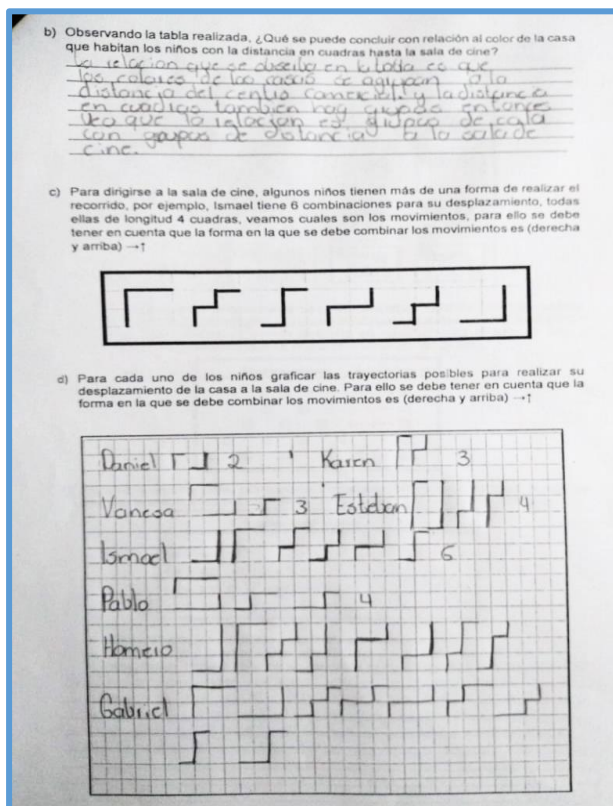 b) Observando la tabla realizada, ¿Qué se puede concluir con relación al color de la casa
que habitan los niños con la distancia en cuadras hasta la sala de cine?
la relacion que se observa en la tabla es que
los colores de las casas se agrupan a la
distancia del centro comercial y la distancia
en cuadras tambien hay entonces
veo que la relacion es grupos de cala
con goupos de distancia a la sala de
cine.
c) Para dirigirse a la sala de cine, algunos niños tienen más de una forma de realizar el
recorrido, por ejemplo, Ismael tiene 6 combinaciones para su desplazamiento, todas
ellas de longitud 4 cuadras, veamos cuales son los movimientos, para ello se debe
tener en cuenta que la forma en la que se debe combinar los movimientos es (derecha
y arriba) →↑
d) Para cada uno de los niños graficar las trayectorias posibles para realizar su
desplazamiento de la casa a la sala de cine. Para ello se debe tener en cuenta que la
forma en la que se debe combinar los movimientos es (derecha y arriba) →↑
Daniel 2 Karen 3
Vanesa 3 Esteban 4
Ismael 6
Pablo 4
Homero
Gabriel